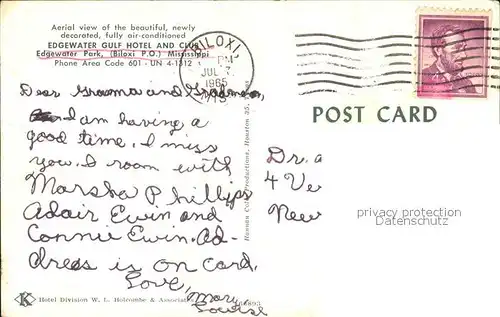 Aerial view of the beautiful, newly
decorated, fully air-conditioned
EDGEWATER GULF HOTEL AND CLUB
Edgewater Park, (Biloxi P.O.) Mississippi
Phone Area Code 601 - UN 4-1312
BILOXI,
PM
JUL 7
1965
MISS
POST CARD
Dear Grandma and Grandman,
I am having a
good time. I miss
you. I room with
Marsha Phillips
Adair Ewin and
Connie Ewin. Ad-
dress is on card.
Love,
Mary
Louise
Dr. a
4 Ve
New
privacy protection
Datenschutz
K Hotel Division W. L. Holcombe & Associates